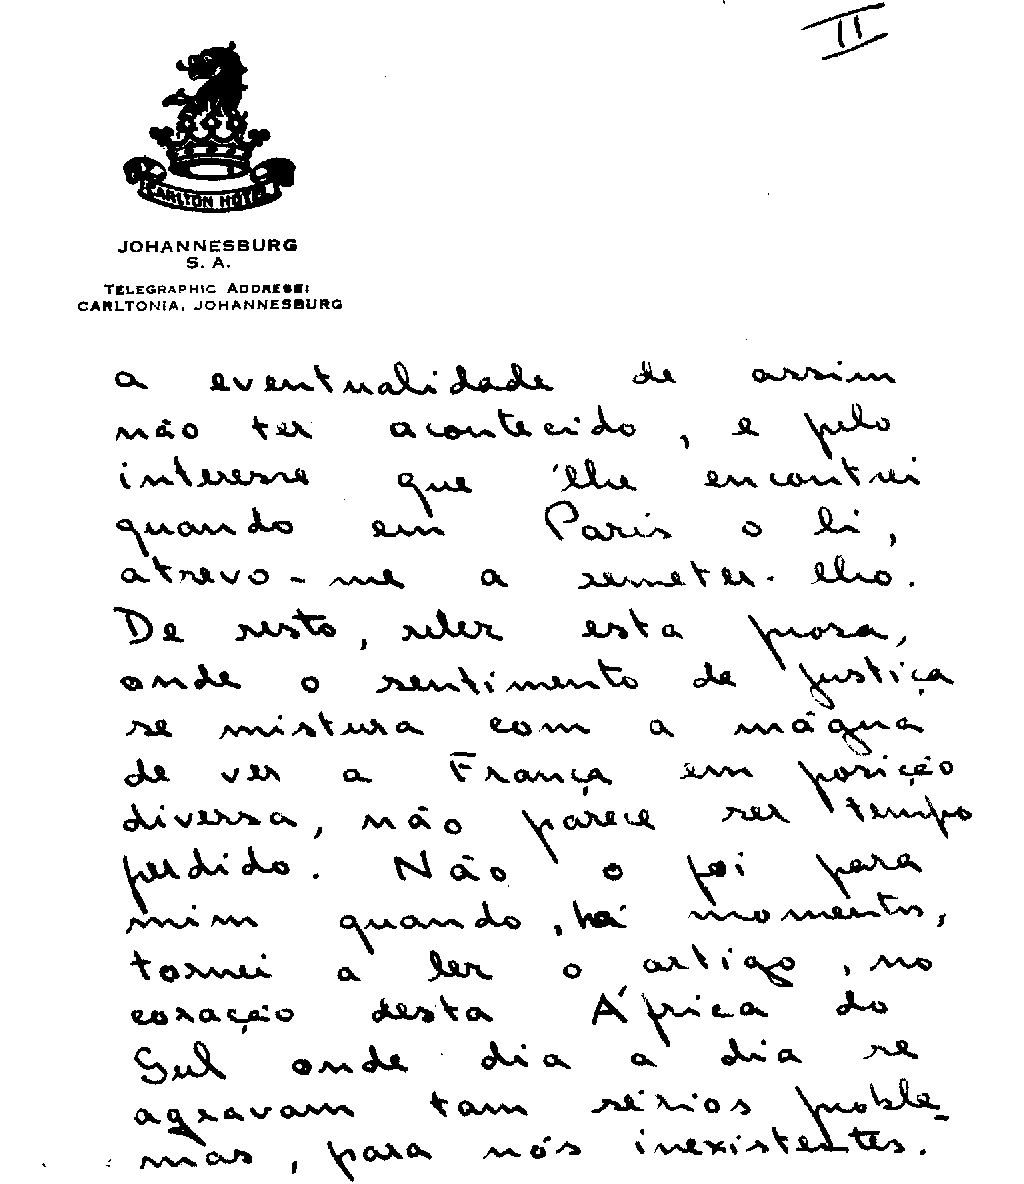 II
CARLTON HOTEL
JOHANNESBURG
S. A.
TELEGRAPHIC ADDRESS:
CARLTONIA, JOHANNESBURG
a eventualidade de assim
não ter acontecido, e pelo
interesse que lhe encontrei
quando em Paris o li,
atrevo-me a remeter-lho.
De resto, reler esta prosa,
onde o sentimento de justiça
se mistura com a mágua
de ver a França em posição
diversa, não parece ser tempo
perdido. Não o foi para
mim quando, há momentos,
tornei a ler o artigo, no
coração desta África do
Sul onde dia a dia se
agravam tam sérios proble-
mas, para nós inexistentes.